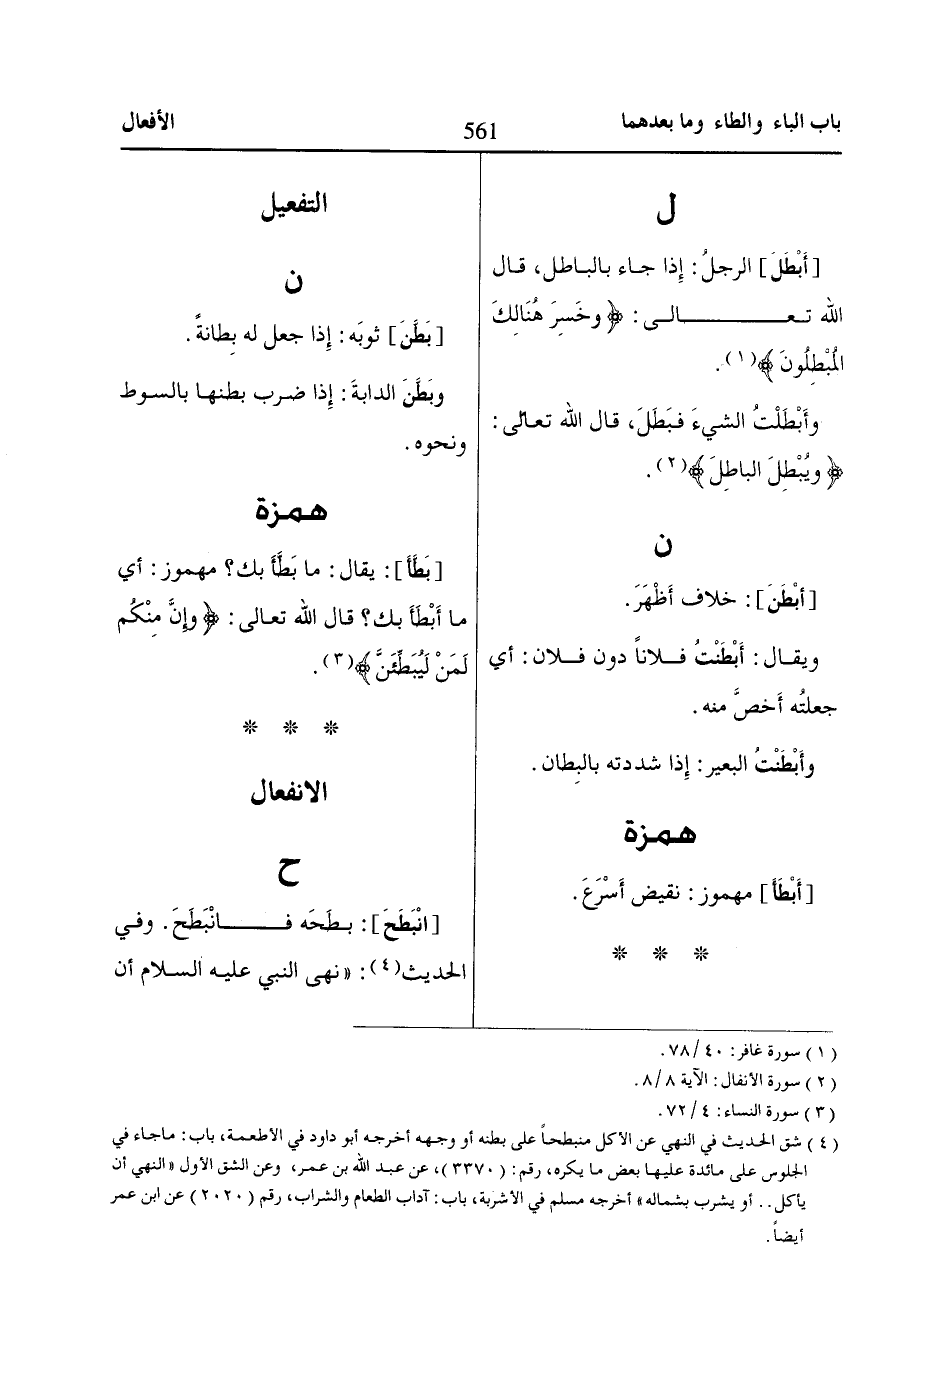 باب الباء والطاء وما بعدهما
561
الأفعال
ل
[أَبْطَلَ] الرجلُ: إذا جاء بالباطل، قال
الله تعالى: ﴿وخَسِرَ هُنَالِكَ
المُبْطِلُونَ﴾(١).
وأَبْطَلْتُ الشيءَ فبَطَلَ، قال الله تعالى:
﴿ويُبْطِلَ الباطِلَ﴾(٢).
ن
[أبْطَنَ]: خلاف أَظْهَرَ.
ويقال: أَبْطَنْتُ فلاناً دون فلان: أي
جعلتُه أَخصَّ منه.
وأَبْطَنْتُ البعير: إذا شددته بالبِطان.
همزة
[أَبْطَأَ] مهموز: نقيض أَسْرَعَ.
* * *
التفعيل
ن
[بَطَّنَ] ثوبَه: إذا جعل له بِطانةً.
وبَطَّنَ الدابةَ: إذا ضرب بطنها بالسوط
ونحوه.
همزة
[بَطَّأَ]: يقال: ما بَطَّأَ بك؟ مهموز: أي
ما أَبْطَأَ بك؟ قال الله تعالى: ﴿وإِنَّ مِنْكُم
لَمَنْ لَيُبَطِّئَنَّ﴾(٣).
* * *
الانفعال
ح
[انْبَطَحَ]: بطَحَه فانْبَطَحَ. وفي
الحديث(٤): «نهى النبي عليه السلام أن
(١) سورة غافر: ٤٠/ ٧٨.
(٢) سورة الأنفال: الآية ٨/ ٨.
(٣) سورة النساء: ٤/ ٧٢.
(٤) شق الحديث في النهي عن الأكل منبطحاً على بطنه أو وجهه أخرجه أبو داود في الأطعمة، باب: ماجاء في
الجلوس على مائدة عليها بعض ما يكره، رقم: (٣٣٧٠)، عن عبد الله بن عمر، وعن الشق الأول «النهي أن
يأكل.. أو يشرب بشماله» أخرجه مسلم في الأشربة، باب: آداب الطعام والشراب، رقم (٢٠٢٠) عن ابن عمر
أيضاً.